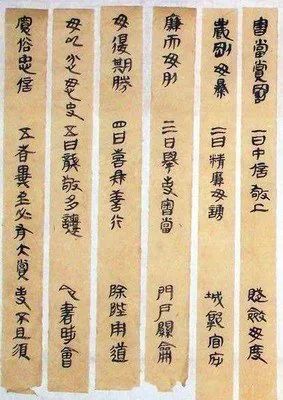 審當賞罰 一曰中信敬上 賦斂毋度
嚴剛毋暴 二曰精廉毋謗 城郭官府
廉而毋刖 三曰舉事審當 門戶關龠
毋復期勝 四曰喜為善行 除陛甬道
毋以忿怒夬 五曰龔敬多讓 命書時會
寬俗忠信 五者畢至必有大賞 事不且須